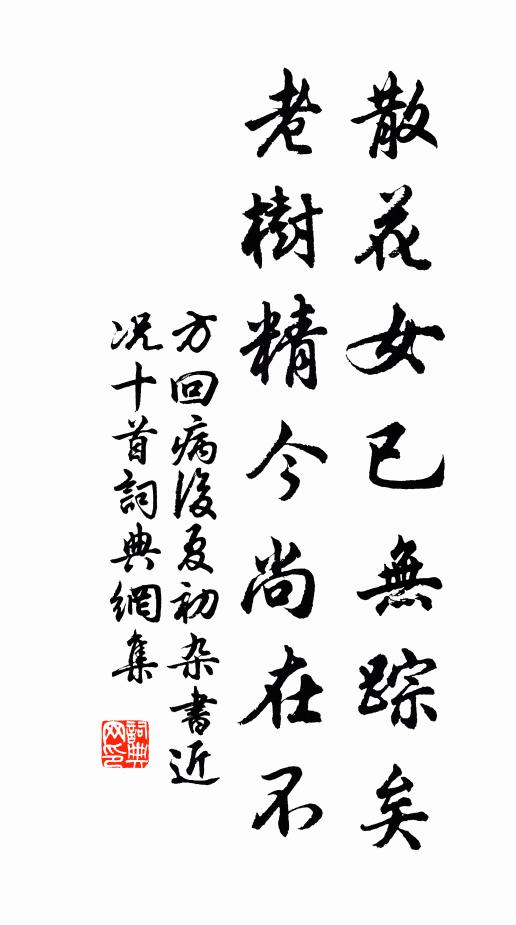 散花女已無踪矣
老樹精今尚在不
方回病後夏初杂書近
况十首詞典網集
詞典網印